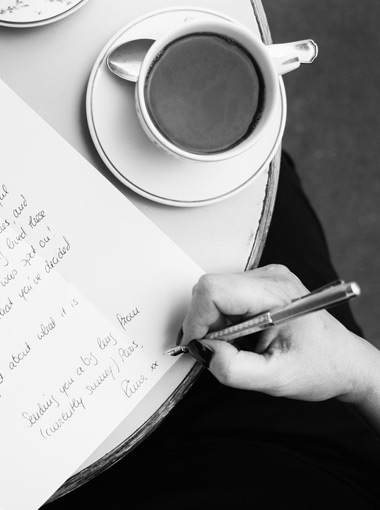 and
lived these
was spot on!
what you've decided
about what it is
Sending you a big hug from
(currently sunny) Paris.
xx